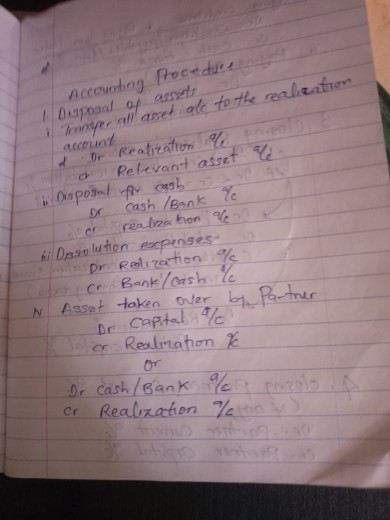 Accounting Procedure
1. Disposal of assets
i Transfer all asset a/c to the realization
account
Dr Realization a/c
cr Relevant asset a/c.
ii Disposal for cash
Dr cash/Bank a/c
cr realization a/c
iii Dissolution expenses
Dr Realization a/c
Cr Bank/cash a/c
iv Asset taken over by Partner
Dr Capital a/c
cr Realization a/c
or
Dr cash/Bank a/c
cr Realization a/c